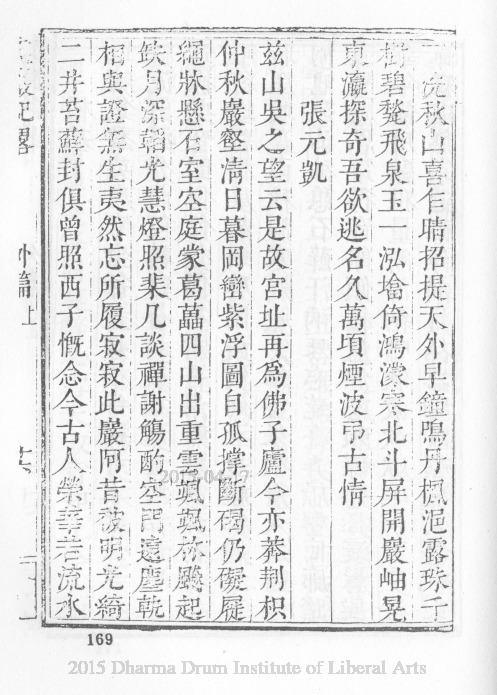 浣秋山喜乍晴招提天外早鐘鳴丹楓浥露珠千
樹碧甃飛泉玉一泓塔倚鴻濛寒北斗屏開巖岫晃
東瀛探奇吾欲逃名久萬頃煙波弔古情
張元凱
茲山吳之望云是故宮址再為佛子廬今亦莽荆枳
仲秋巖壑淸日暮岡巒紫浮圖自孤撐斷碣仍礙屣
繩牀懸石室空庭蒙葛藟四山出重雲颯颯林飈起
缺月深韜光慧燈照棐几談禪謝觴酌空門遠塵軌
相與證無生夷然忘所履寂寂此巖阿昔被明光綺
二井苔蘚封俱曾照西子慨念今古人榮華若流水
外篇上
169
2015 Dharma Drum Institute of Liberal Arts